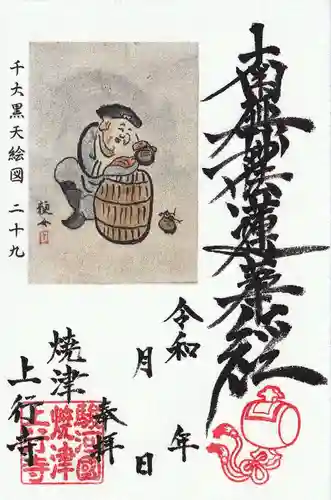 南無妙法蓮華経
千大黒天絵図 二十九
令和 年
月 日
奉拝
焼津
上行寺
駿河國
焼津
上行寺